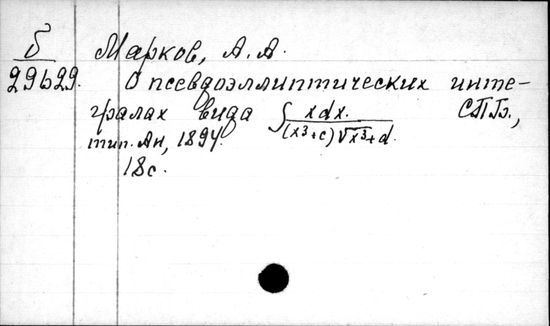 Б
29629.
Марков, А. А.
О псевдоэллиптических инте-
гралах вида ∫ xdx. / (x³+c)√x³+d. СПБ.,
тип. Ан, 1894.
18с.